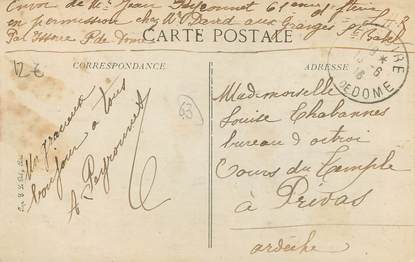 Envoi de Mr Jean Peyronnet 61 eme
en permission chez Mr David aux Granges
Par Issoire P. de Dome
CARTE POSTALE
12€
CORRESPONDANCE
ADRESSE
Un gracieux
bonjour à tous
A Peyronnet
53
Mademoiselle
Louise Chabannes
bureau d'octroi
Cours du Temple
à Privas
ardèche
DE DOME